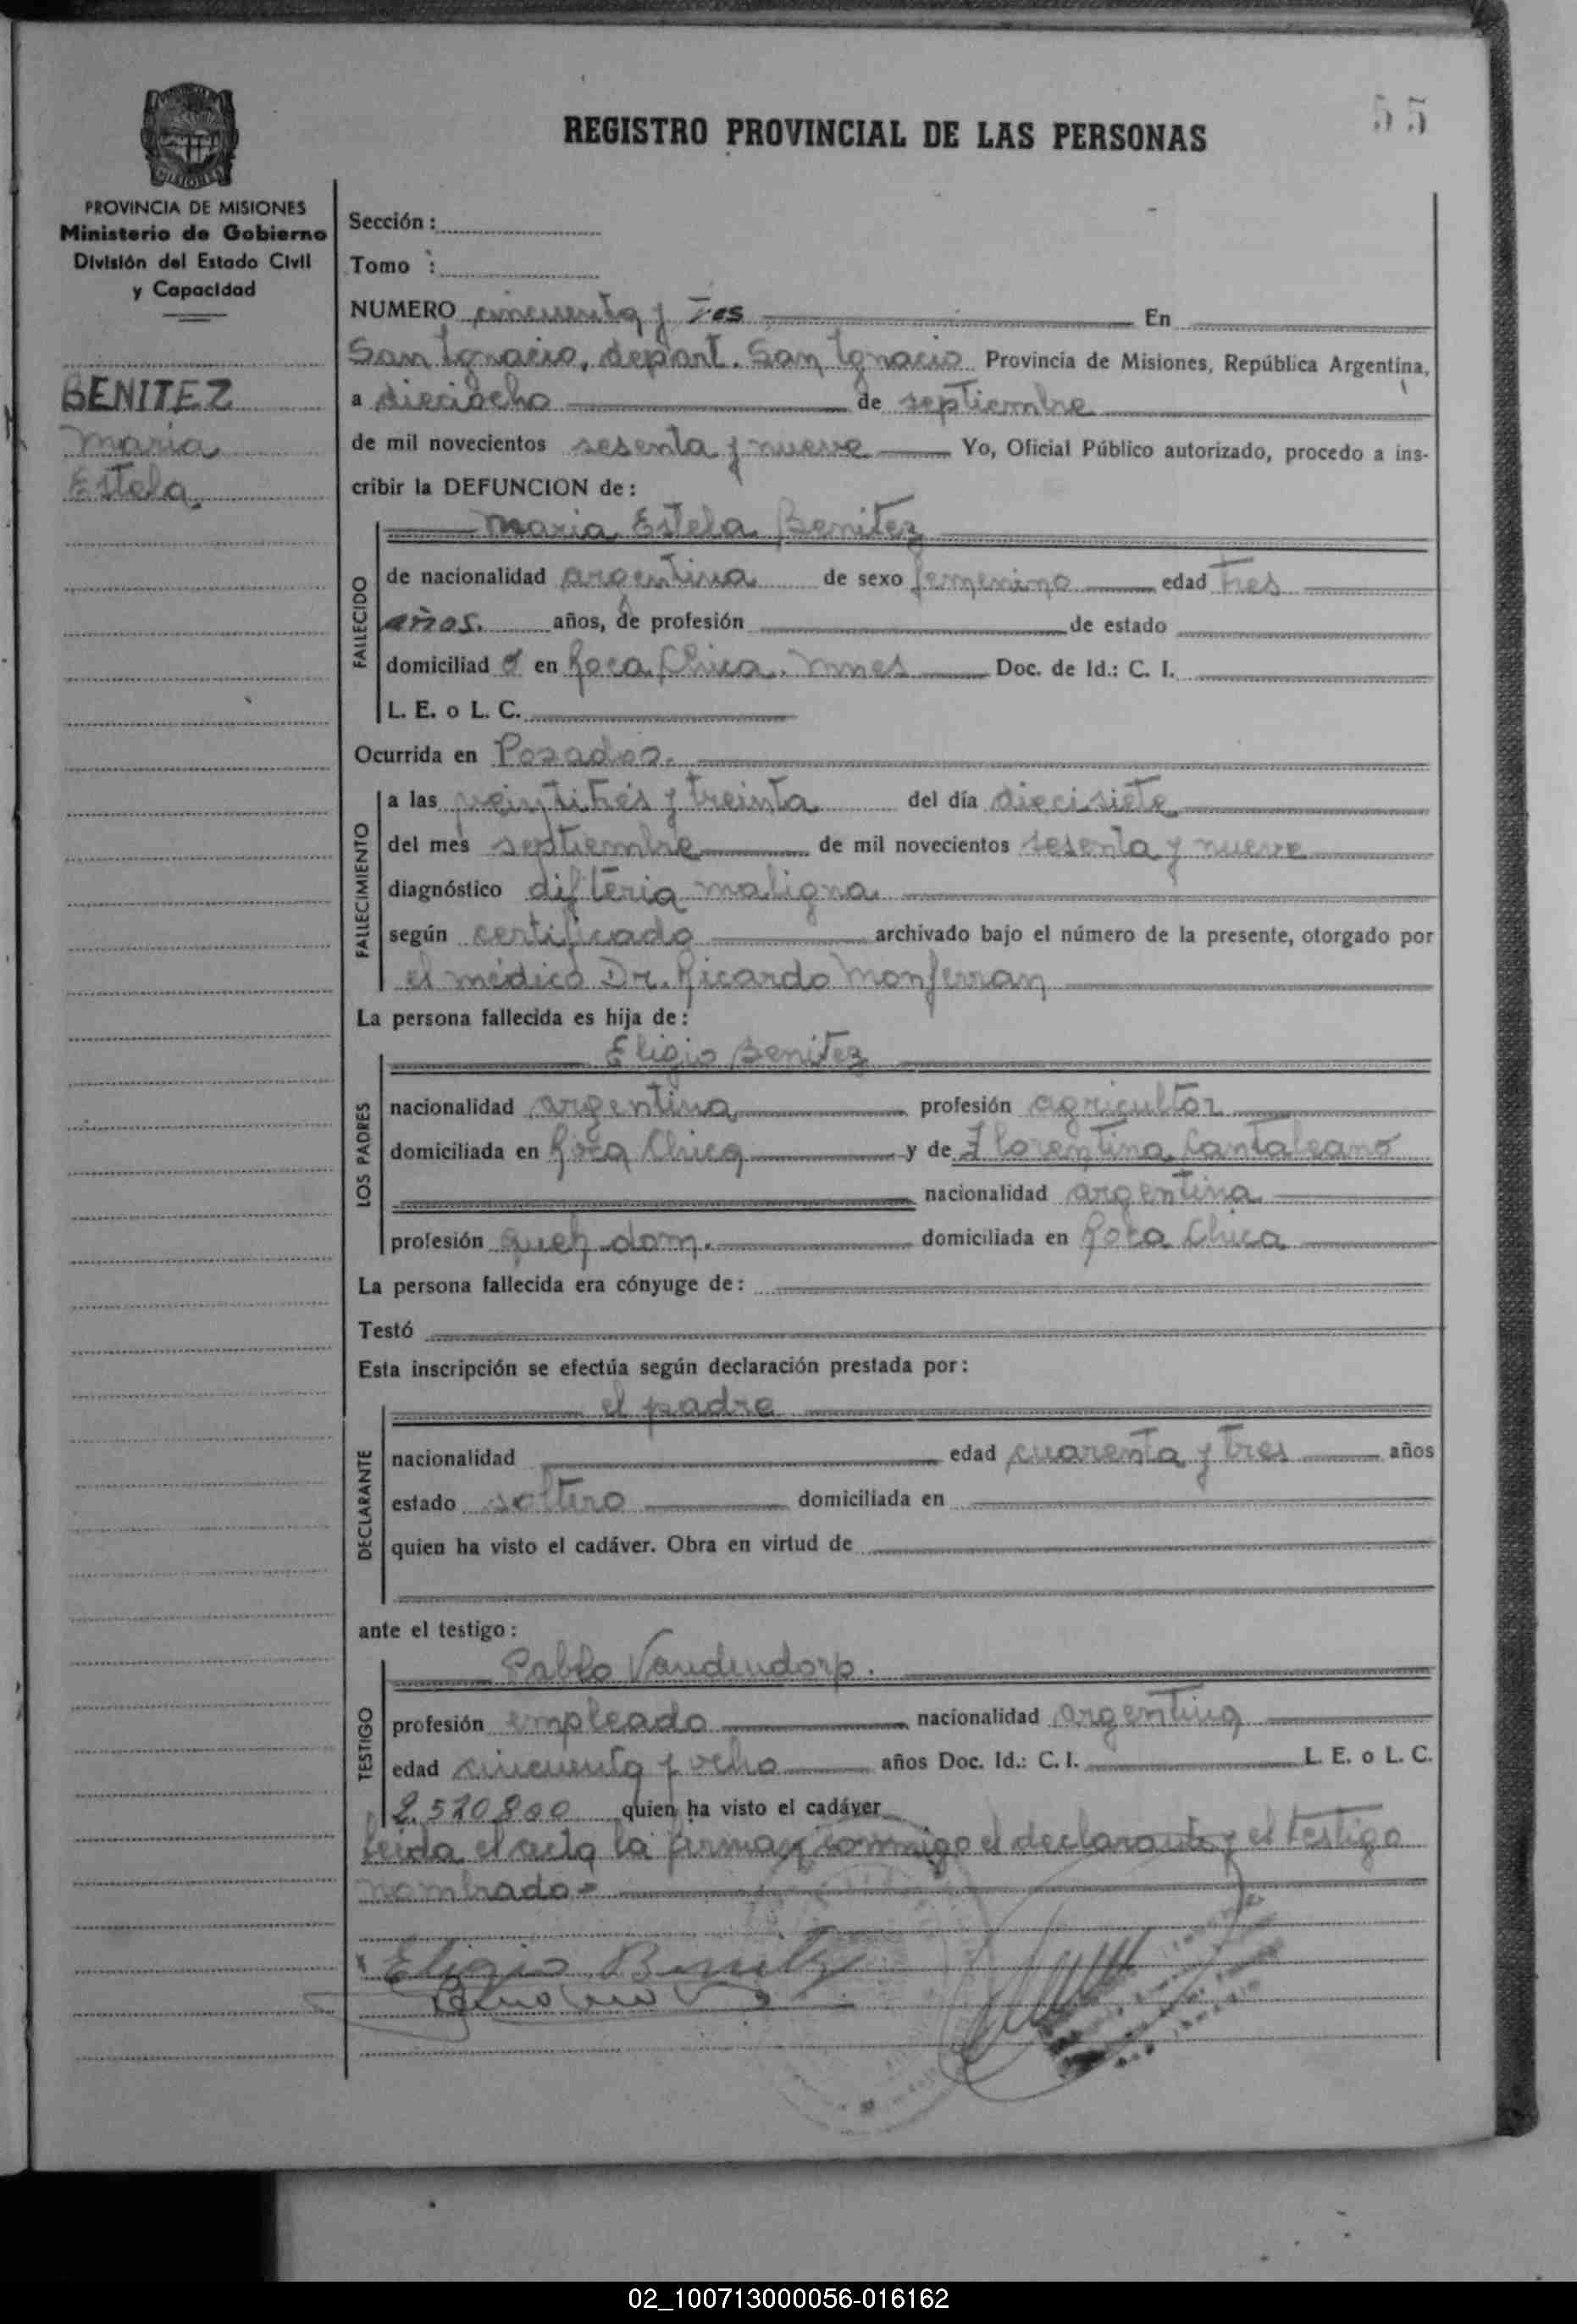 55
REGISTRO PROVINCIAL DE LAS PERSONAS
PROVINCIA DE MISIONES
Ministerio de Gobierno
División del Estado Civil
y Capacidad
BENITEZ
Maria
Estela
Sección :
Tomo :
NUMERO cincuenta y tres En
San Ignacio, depart. San Ignacio Provincia de Misiones, República Argentina,
a dieciocho de septiembre
de mil novecientos sesenta y nueve Yo, Oficial Público autorizado, procedo a ins-
cribir la DEFUNCION de :
Maria Estela Benitez
FALLECIDO
de nacionalidad argentina de sexo femenino edad tres
años. años, de profesión de estado
domiciliad a en Roca Chica. Mnes Doc. de Id.: C. I.
L. E. o L. C.
Ocurrida en Posadas.
FALLECIMIENTO
a las veintitrés y treinta del día diecisiete
del mes septiembre de mil novecientos sesenta y nueve
diagnóstico difteria maligna
según certificado archivado bajo el número de la presente, otorgado por
el médico Dr. Ricardo Monferran
La persona fallecida es hija de :
Eligio Benitez
LOS PADRES
nacionalidad argentina profesión agricultor
domiciliada en Roca Chica y de Florentina Cantaleano
nacionalidad argentina
profesión queh. dom. domiciliada en Roca Chica
La persona fallecida era cónyuge de :
Testó
Esta inscripción se efectúa según declaración prestada por :
el padre
DECLARANTE
nacionalidad edad cuarenta y tres años
estado soltero domiciliada en
quien ha visto el cadáver. Obra en virtud de
ante el testigo :
Pablo Vandendorp.
TESTIGO
profesión empleado nacionalidad argentina
edad cincuenta y ocho años Doc. Id.: C. I. L. E. o L. C.
2.520800 quien ha visto el cadáver
Leida el acta la firman conmigo el declarante y el testigo
nombrado-
Eligio Benitez
02_100713000056-016162